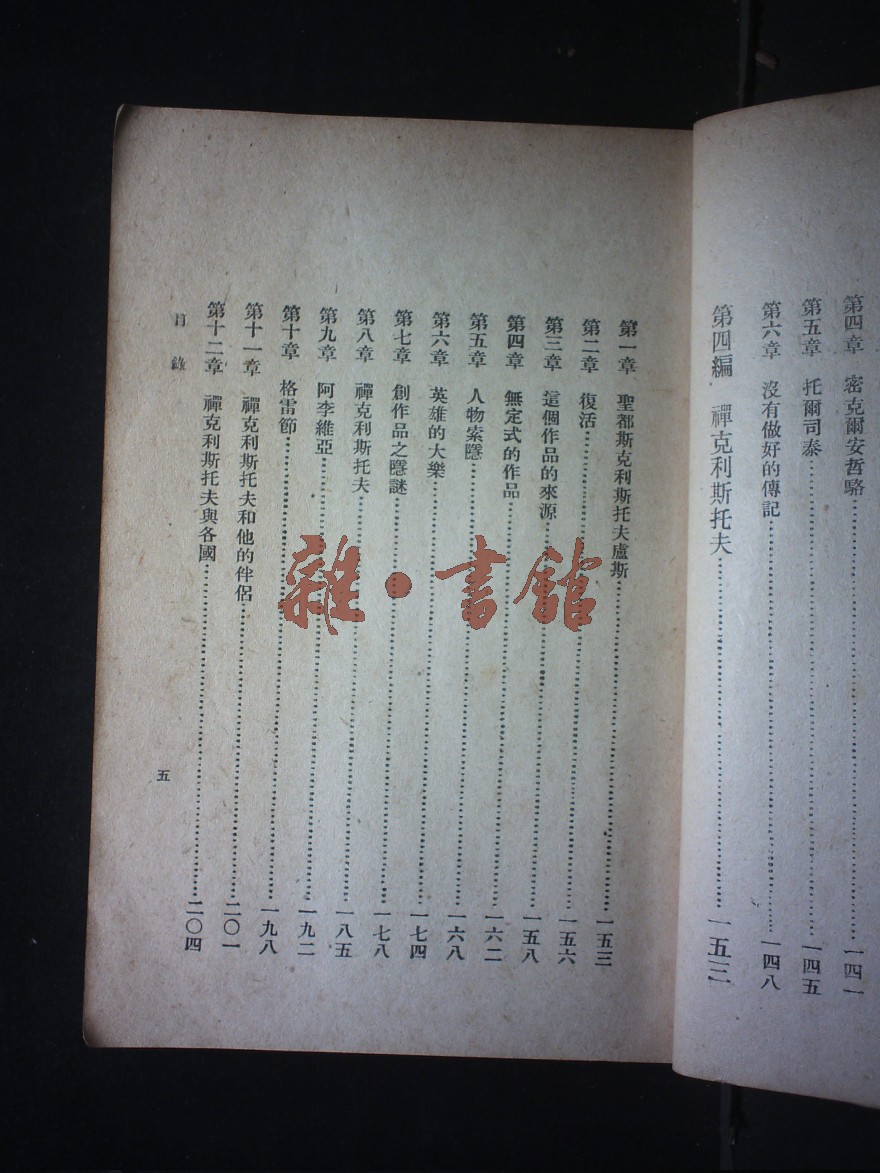 第四章 密克爾安哲駱 一四一
第五章 托爾司泰 一四五
第六章 沒有做好的傳記 一四八
第四編 禪克利斯托夫 一五三
第一章 聖都斯克利斯托夫盧斯 一五三
第二章 復活 一五六
第三章 這個作品的來源 一五八
第四章 無定式的作品 一六二
第五章 人物索隱 一六八
第六章 英雄的大樂 一七四
第七章 創作品之隱謎 一七八
第八章 禪克利斯托夫 一八五
第九章 阿李維亞 一九二
第十章 格雷節 一九八
第十一章 禪克利斯托夫和他的伴侶 二〇一
第十二章 禪克利斯托夫與各國 二〇四
目錄
五
雜·書館